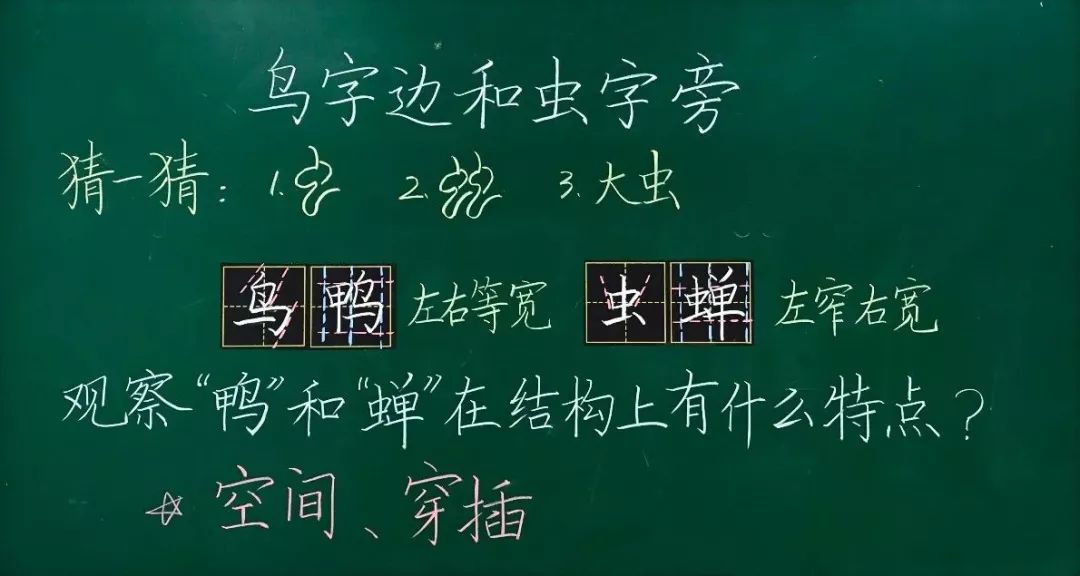 鸟字边和虫字旁
猜一猜：1. 2. 3.大虫
鸟 鸭 左右等宽 虫 蝉 左窄右宽
观察“鸭”和“蝉”在结构上有什么特点？
☆ 空间、穿插